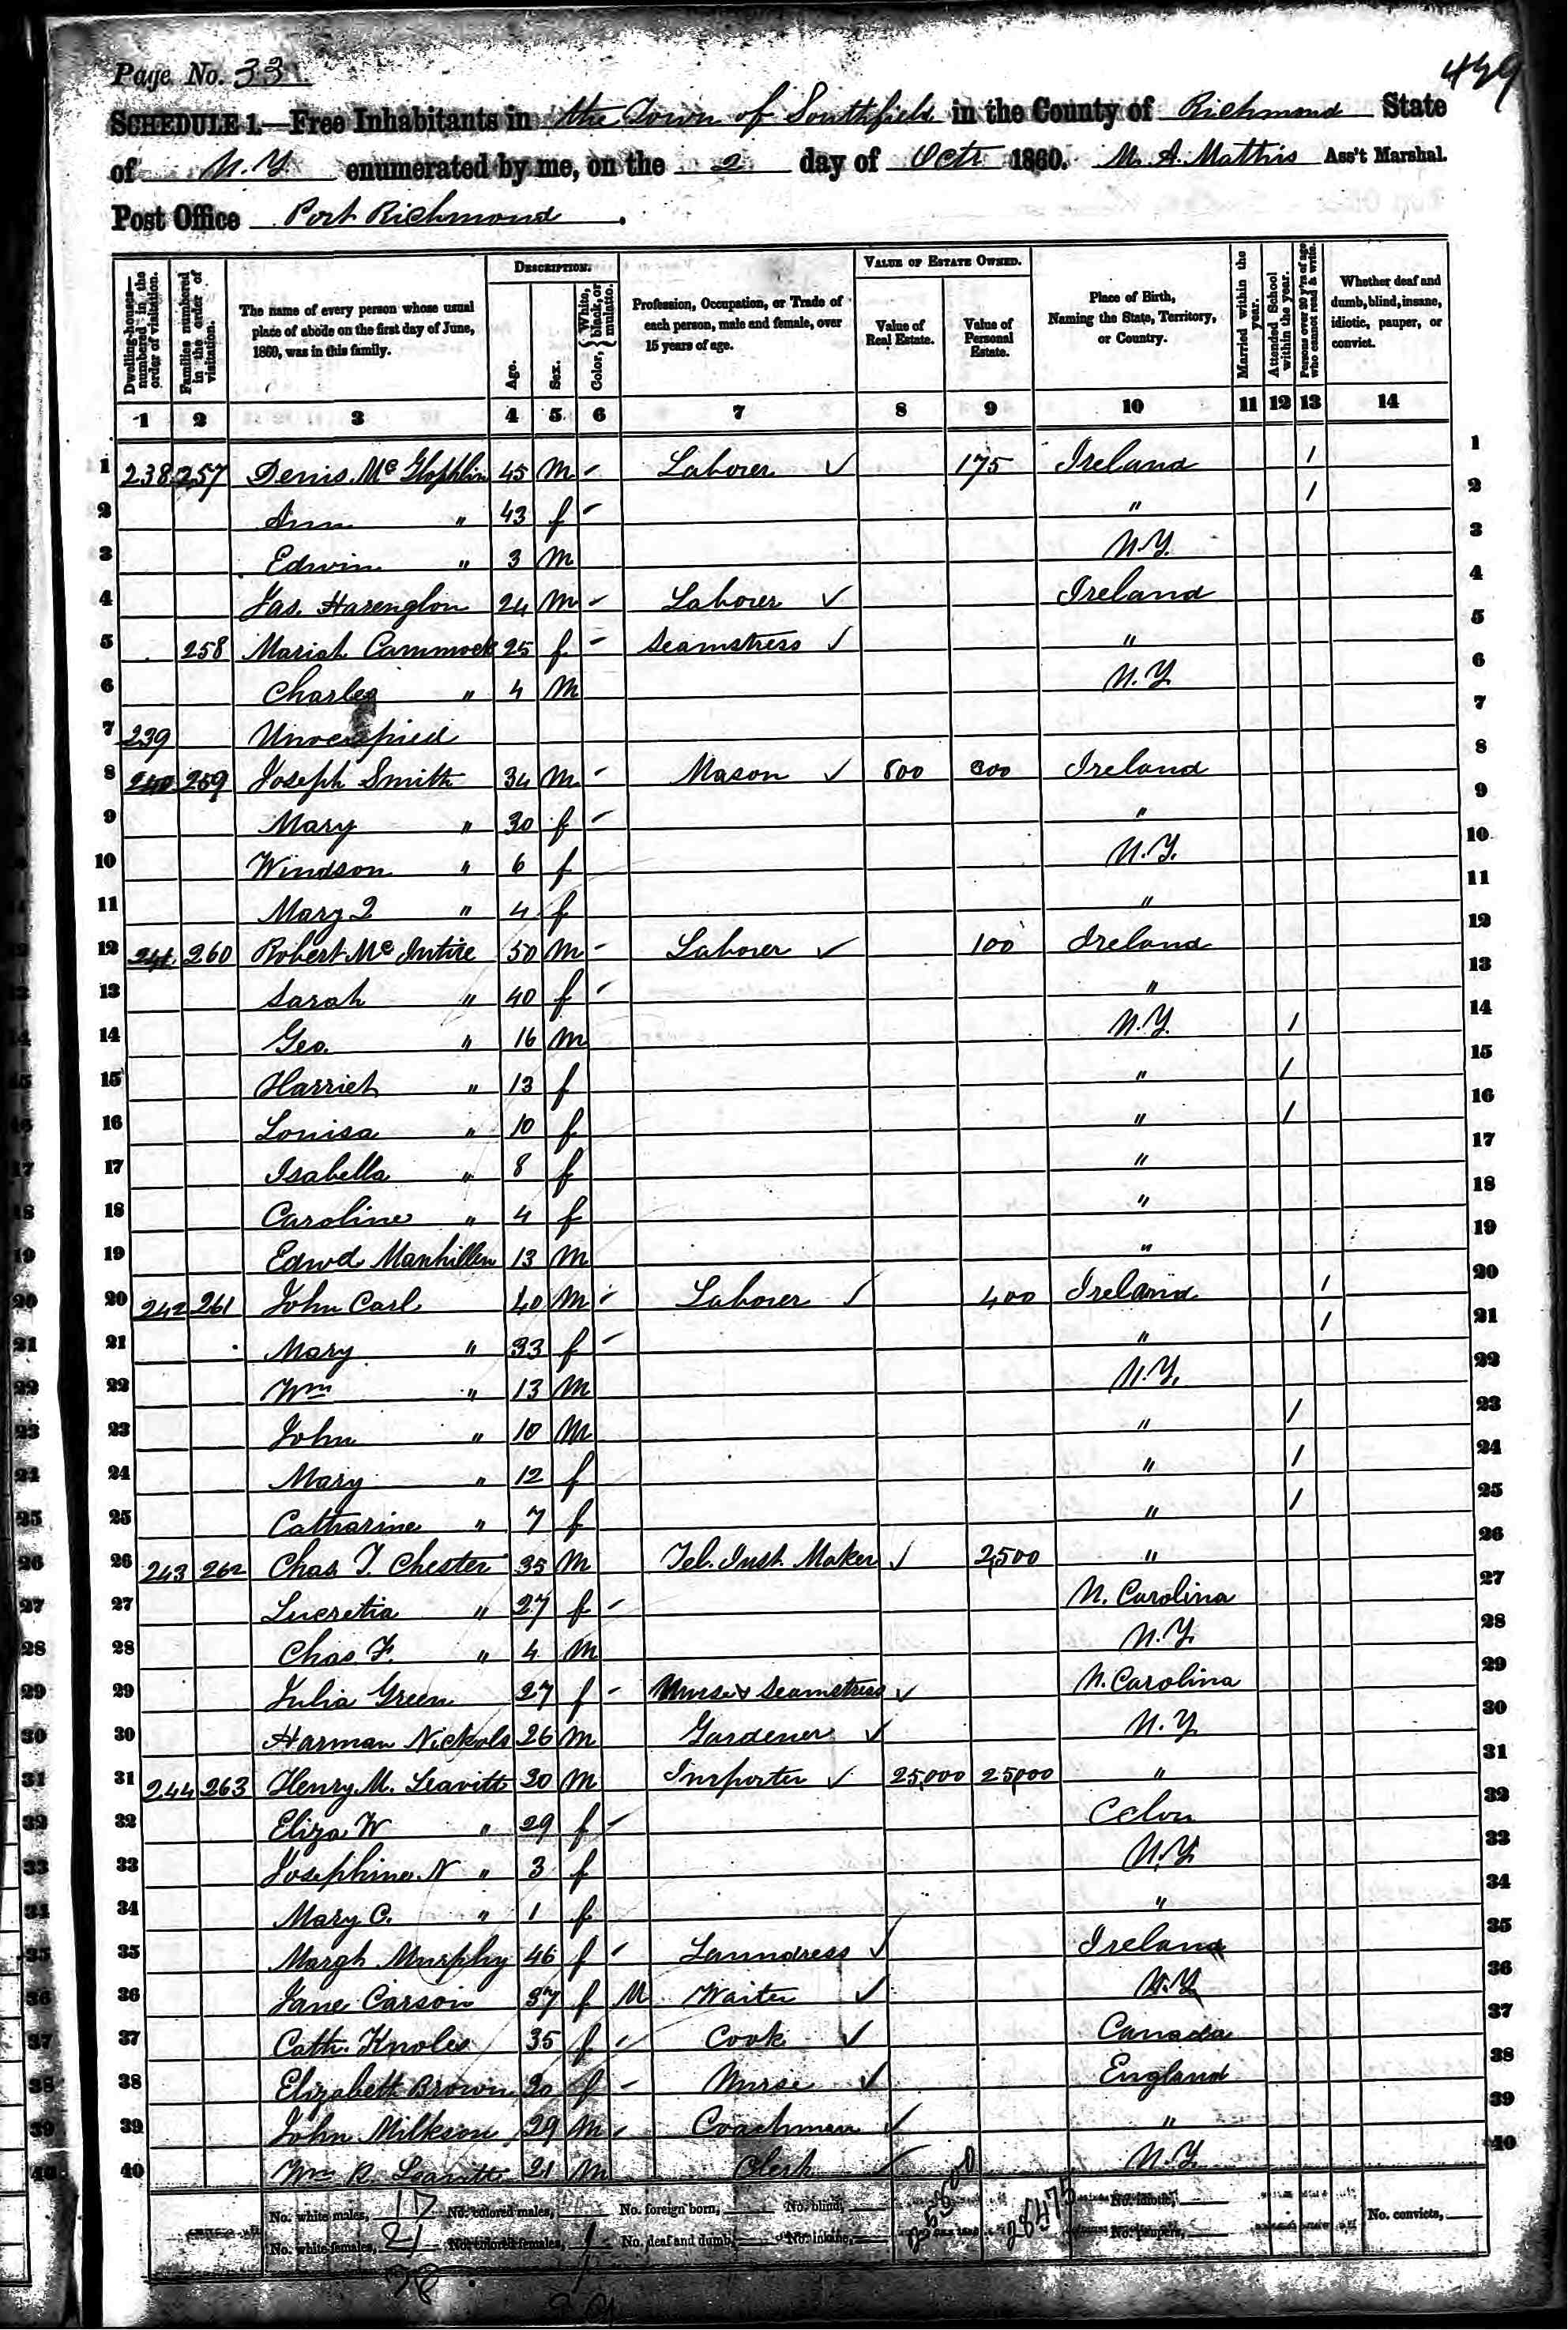 Page No. 33
SCHEDULE 1.—Free Inhabitants in the Town of Southfield in the County of Richmond State
of N.Y. enumerated by me, on the 2 day of Octr 1860. M. A. Mathis Ass't Marshal.
Post Office Port Richmond.
Dwelling-houses—numbered in the order of visitation. Families numbered in the order of visitation. The name of every person whose usual place of abode on the first day of June, 1860, was in this family. DESCRIPTION. Age. Sex. Color, White, black, or mulatto. Profession, Occupation, or Trade of each person, male and female, over 15 years of age. VALUE OF ESTATE OWNED. Value of Real Estate. Value of Personal Estate. Place of Birth, Naming the State, Territory, or Country. Married within the year. Attended School within the year. Persons over 20 y'rs of age who cannot read & write. Whether deaf and dumb, blind, insane, idiotic, pauper, or convict.
1 2 3 4 5 6 7 8 9 10 11 12 13 14
1 238 257 Denis Mc Glophlin 45 M - Laborer ✓ 175 Ireland / 1
2 Ann " 43 f - " / 2
3 Edwin " 3 M N.Y. 3
4 Jas. Harenglon 24 M - Laborer ✓ Ireland 4
5 258 Mariah Cammock 25 f - Seamstress ✓ " 5
6 Charles " 4 M N.Y. 6
7 239 Unocupied 7
8 240 259 Joseph Smith 34 M - Mason ✓ 800 300 Ireland 8
9 Mary " 30 f - " 9
10 Windson " 6 f N.Y. 10
11 Mary J " 4 f " 11
12 241 260 Robert Mc Intire 50 M - Laborer ✓ 100 Ireland 12
13 Sarah " 40 f - " 13
14 Geo. " 16 M N.Y. / 14
15 Harriet " 13 f " / 15
16 Louisa " 10 f " / 16
17 Isabella " 8 f " 17
18 Caroline " 4 f " 18
19 Edwd Manhillen 13 M " 19
20 242 261 John Carl 40 M - Laborer ✓ 400 Ireland / 20
21 Mary " 33 f - " / 21
22 Wm " 13 M N.Y. 22
23 John " 10 M " / 23
24 Mary " 12 f " / 24
25 Catharine " 7 f " / 25
26 243 262 Chas T. Chester 35 M Tel. Inst. Maker ✓ 2,500 " 26
27 Lucretia " 27 f - N. Carolina 27
28 Chas. F. " 4 M N.Y. 28
29 Julia Green 27 f - Nurse & Seamstress ✓ N. Carolina 29
30 Harman Nickols 26 M Gardener ✓ N.Y. 30
31 244 263 Henry M. Leavitt 30 M Importer ✓ 25,000 25,000 " 31
32 Eliza W " 29 f - Celon 32
33 Josephine N " 3 f N.Y. 33
34 Mary C. " 1 f " 34
35 Margh Murphy 46 f - Laundress ✓ Ireland 35
36 Jane Carson 37 f M Waiter ✓ N.Y. 36
37 Cath. Knoles 35 f - Cook ✓ Canada 37
38 Elizabeth Brown 30 f - Nurse ✓ England 38
39 John Milkson 29 M - Coachman ✓ " 39
40 Wm R. Leavitt 21 M Clerk ✓ N.Y. 40
No. white males, 17 No. colored males, No. foreign born, No. blind, No. idiotic,
No. white females, 21 No. colored females, 1 No. deaf and dumb, No. insane, 28475 No. paupers, No. convicts,